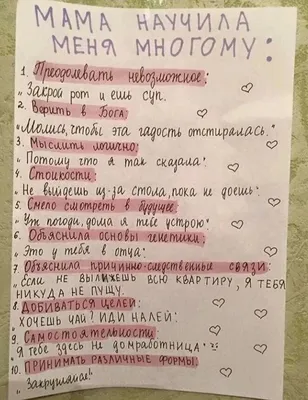 МАМА НАУЧИЛА
МЕНЯ МНОГОМУ:
1. Преодолевать невозможное:
„Закрой рот и ешь суп.
2. Верить в Бога
„Молись, чтобы эта гадость отстиралась."
3. Мыслить логично:
„Потому что я так сказала"
4. Стойкости:
„Не выйдешь из-за стола, пока не доешь"
5. Смело смотреть в будущее
„Уж погоди, дома я тебе устрою"
6. Объяснила основы генетики:
„Это у тебя в отца"
7 Объяснила причинно-следственные связи
„Если не вылижешь всю квартиру, я тебя
никуда не пущу.
8. Добиваться целей:
Хочешь чай? Иди налей.
9. Самостоятельности:
Я тебе здесь не домработница"
10. Принимать различные формы
„Закрушаче!"